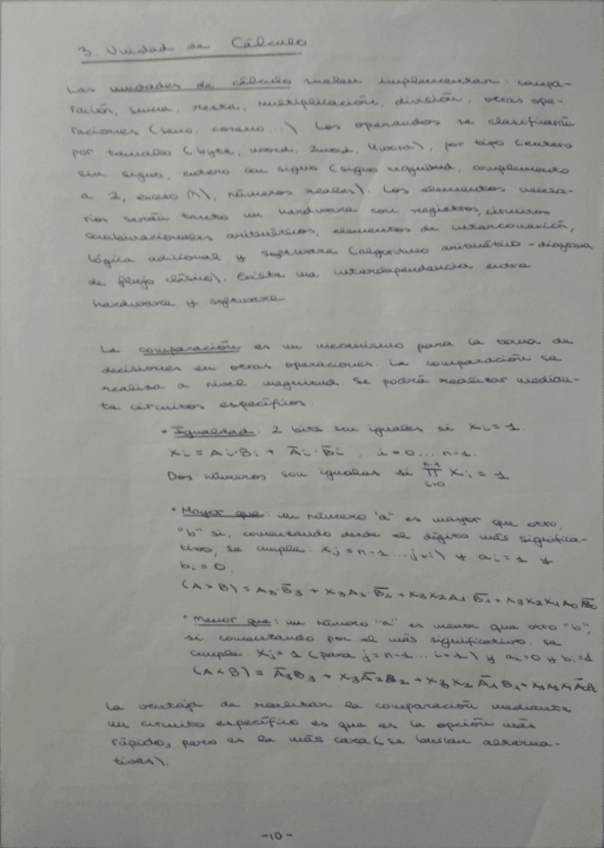 3. Unidad de Cálculo
Las unidades de cálculo suelen implementar: compa-
ración, suma, resta, multiplicación, división, otras ope-
raciones (seno, coseno...). Los operandos se clasificarán
por tamaño (byte, word, 2word, 4word), por tipo (entero
sin signo, entero con signo (signo magnitud, complemento
a 2, exceso M), números reales). Los elementos necesa-
rios serán tanto un hardware con registros, circuitos
combinacionales aritméticos, elementos de interconexión,
lógica adicional y software (algoritmo aritmético - diagrama
de flujo clásico). Existe una interdependencia entre
hardware y software
La comparación es un mecanismo para la toma de
decisiones en otras operaciones. La comparación se
realiza a nivel magnitud. Se podrá realizar median-
te circuitos específicos.
• Igualdad: 2 bits son iguales si xi = 1.
xi = Ai·Bi + A̅i·B̅i , i = 0...n-1.
Dos números son iguales si ∏ xi = 1
• Mayor que: un número "a" es mayor que otro,
"b" si, comenzando desde el dígito más significa-
tivo, se cumple: xj = n-1...j+i) y ai = 1 y
bi = 0.
(A>B) = A3·B̅3 + x3A2·B̅2 + x3x2A1·B̅1 + x3x2x1A0B̅0
• Menor que: un número "a" es menor que otro "b",
si, comenzando por el más significativo, se
cumple: xj = 1 (para j = n-1...i+1) y ai = 0 y bi = 1
(A<B) = A̅3B3 + x3A̅2B2 + x3x2A̅1B1 + x3x2x1A̅0B0
La ventaja de realizar la comparación mediante
un circuito específico es que es la opción más
rápida, pero es la más cara (se buscan alterna-
tivas).
-10-